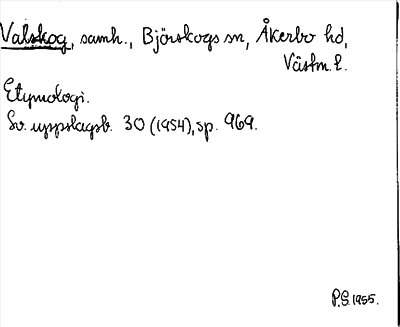 Valskog, samh., Björskogs sn, Åkerbo hd,
Västm. l.
Etymologi.
Sv. uppslagsb. 30 (1954), sp. 969.
P.S. 1955.